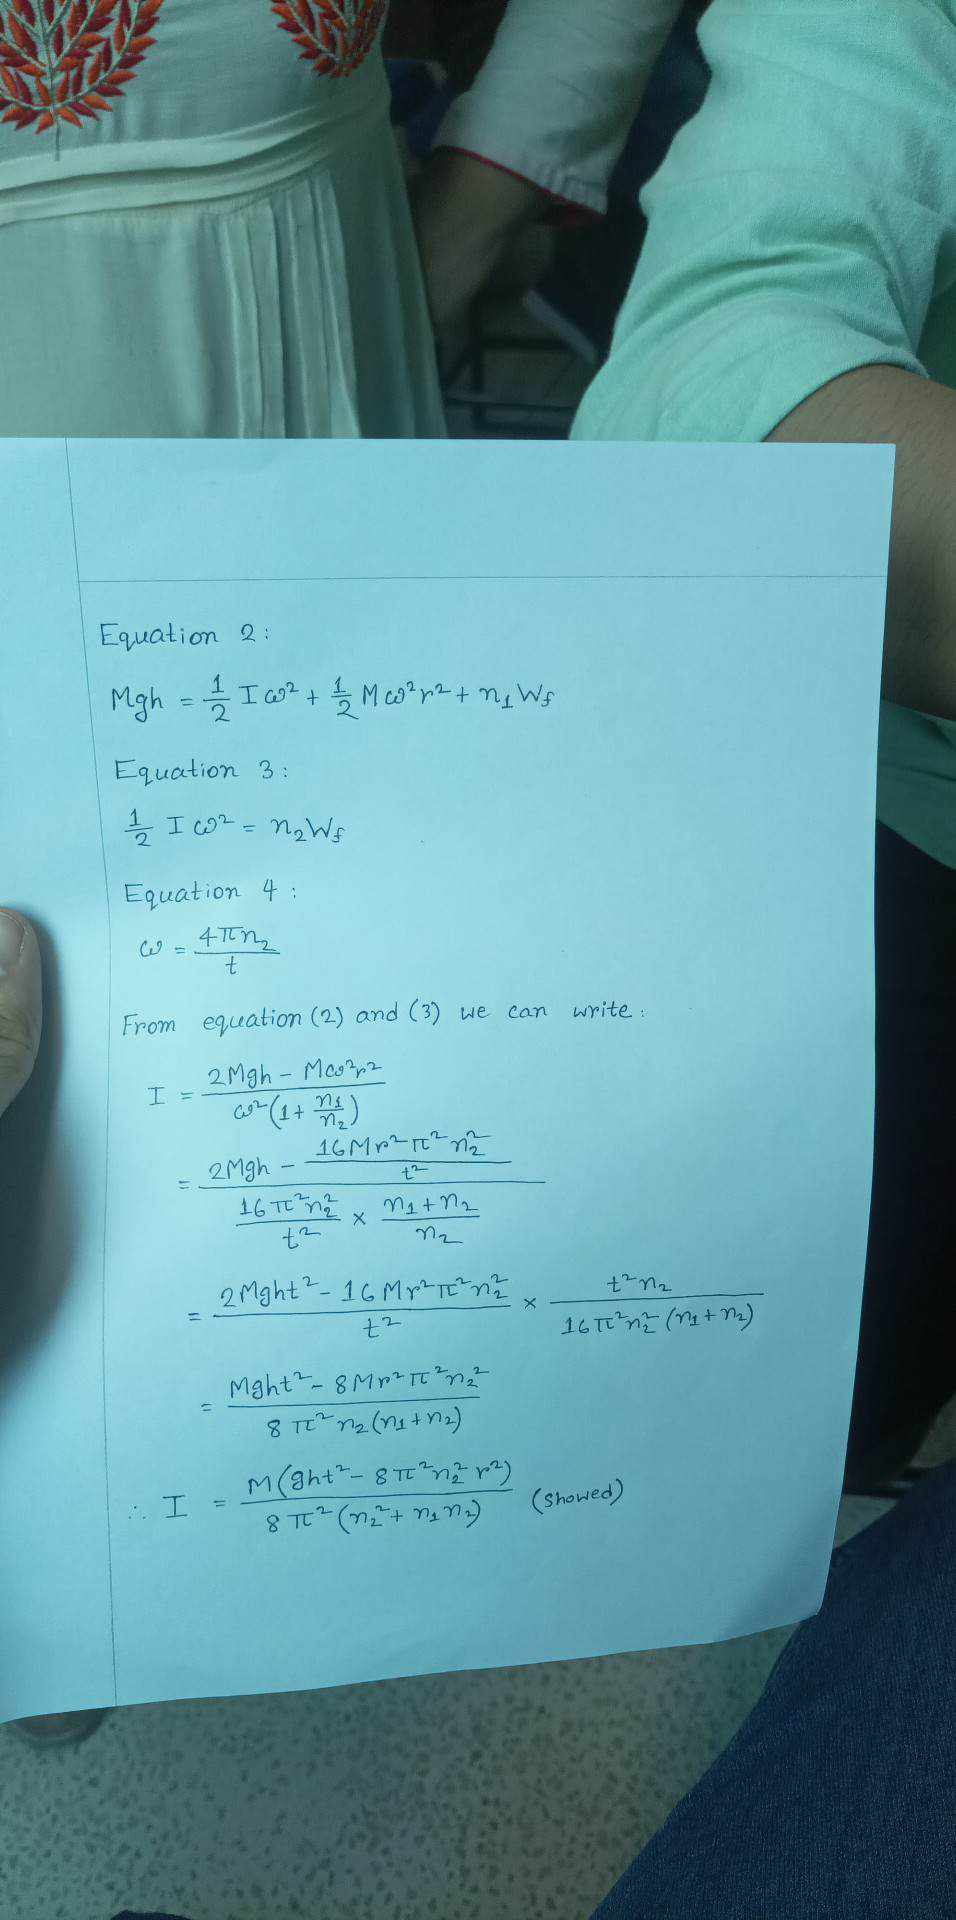 Equation 2:
Mgh = 1/2 Iω² + 1/2 Mω²r² + n₁W_f
Equation 3:
1/2 Iω² = n₂W_f
Equation 4:
ω = 4πn₂/t
From equation (2) and (3) we can write:
I = (2Mgh - Mω²r²)/(ω²(1 + n₁/n₂))
= (2Mgh - 16Mr²π²n₂²/t²)/(16π²n₂²/t² × (n₁+n₂)/n₂)
= (2Mght² - 16Mr²π²n₂²)/t² × t²n₂/(16π²n₂²(n₁+n₂))
= (Mght² - 8Mr²π²n₂²)/(8π²n₂(n₁+n₂))
∴ I = M(ght² - 8π²n₂²r²)/(8π²(n₂² + n₁n₂)) (showed)